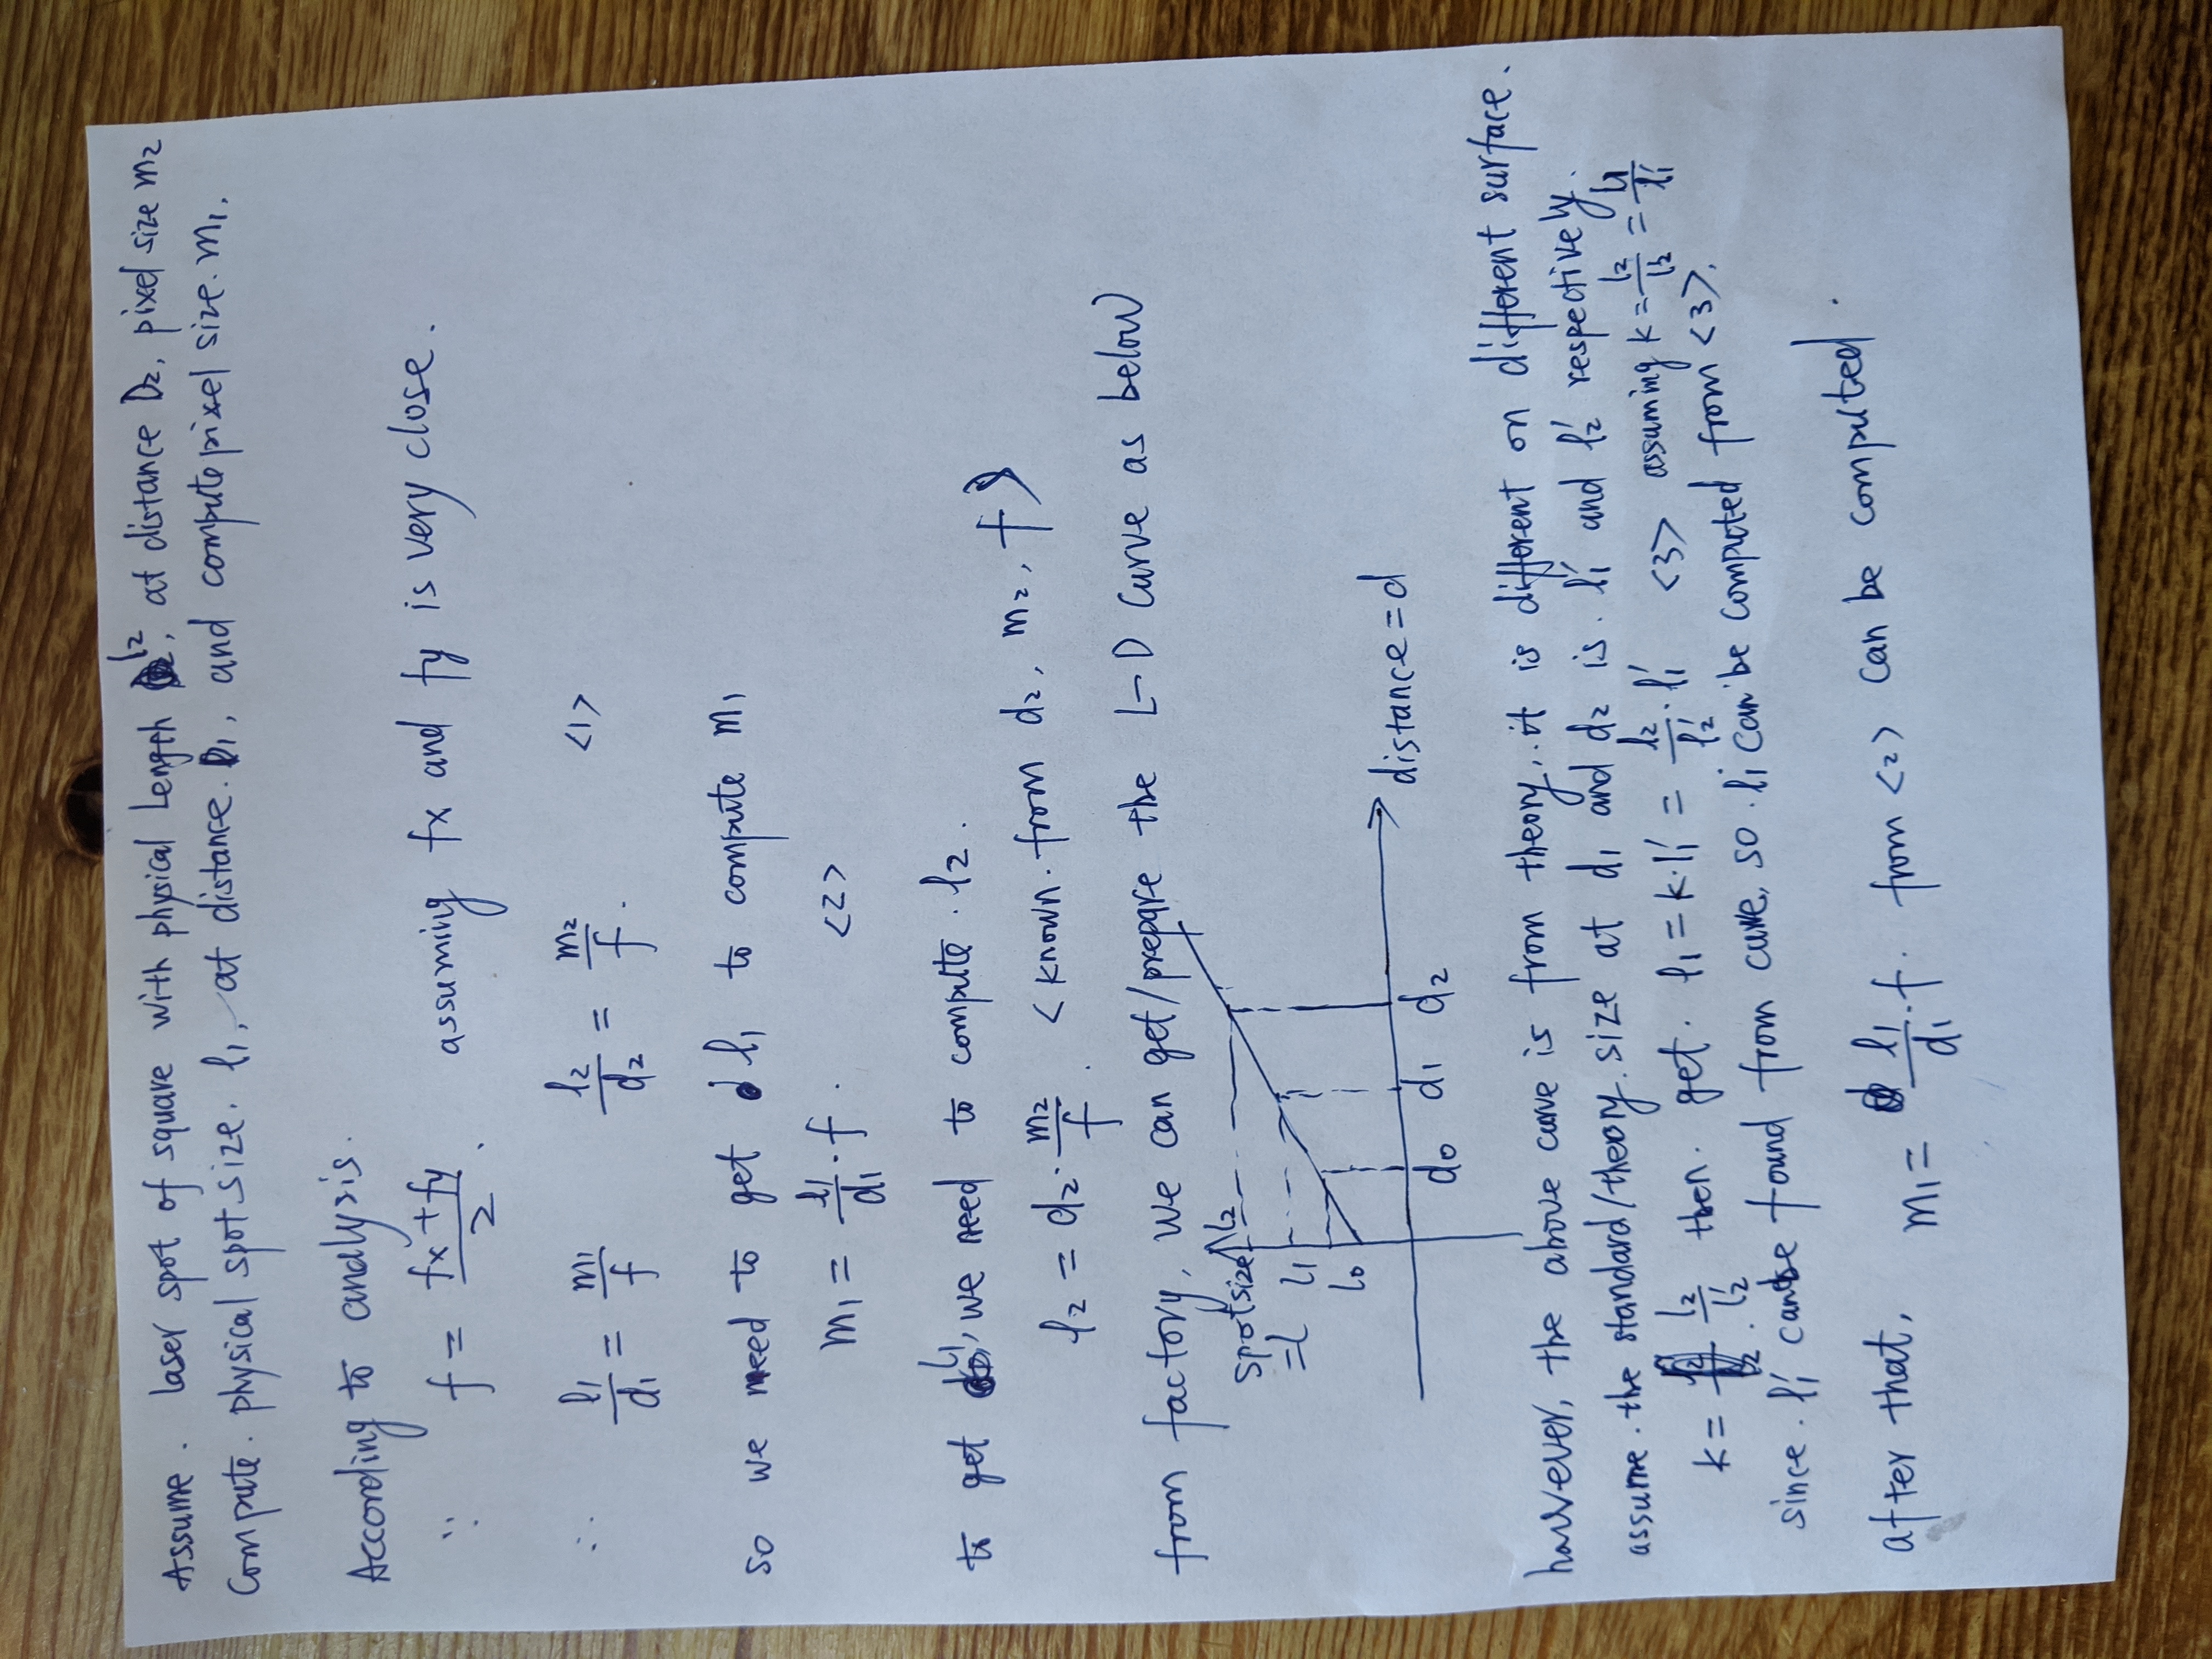 Assume. laser spot of square with physical Length l2, at distance D2, pixel size m2
Compute. physical spot size. l1, at distance. D1, and compute pixel size. m1.
According to analysis.
∵ f = (fx+fy)/2. assuming fx and fy is very close.
∴ l1/d1 = m1/f l2/d2 = m2/f. <1>
so we need to get l1 to compute m1
m1 = l1/d1 · f. <2>
to get l1, we need to compute. l2.
l2 = d2 · m2/f. <known. from d2, m2, f>
from factory, we can get/prepare the L-D curve as below
spot size l2
=l l1
l0
distance = d
d0 d1 d2
however, the above curve is from theory, it is different on different surface.
assume. the standard/theory. size at d1 and d2 is. l1' and l2' respectively.
k = l2/l2' then. get. l1 = k·l1' = l2/l2' · l1' <3> assuming k = l2/l2' = l1/l1'
since. l1' can be found from curve, so. l1 can be computed from <3>.
after that, m1 = l1/d1 · f. from <2> can be computed.